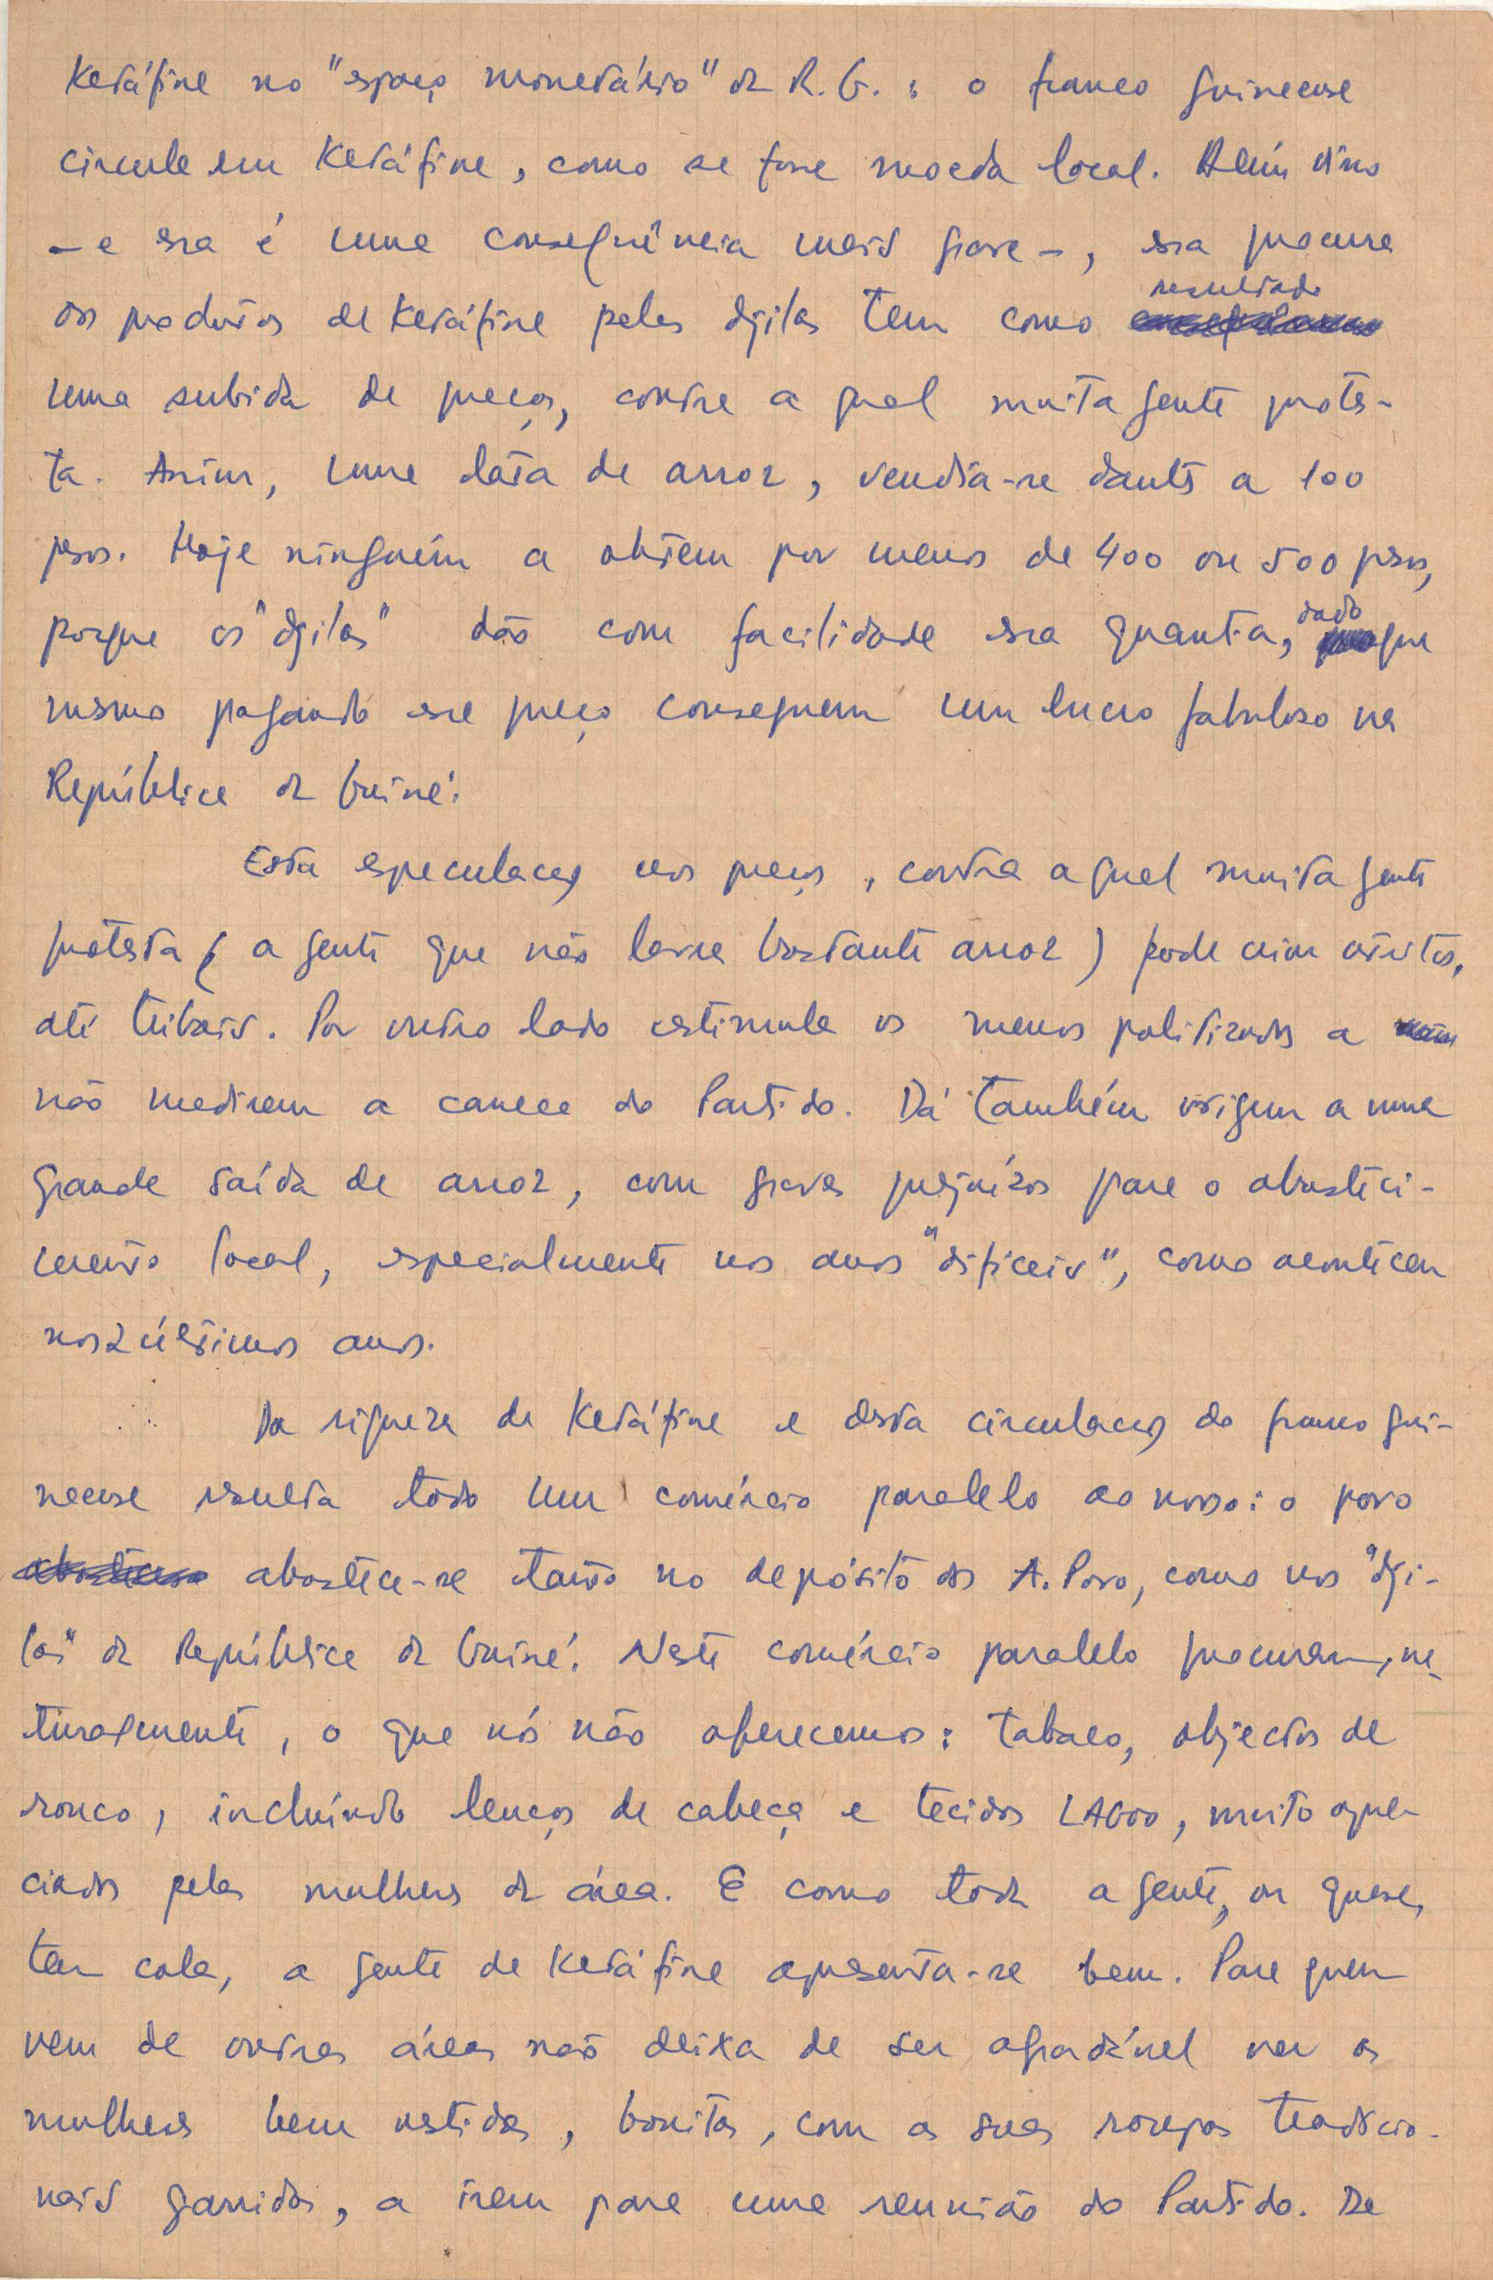 Ketáfine no "espaço monetário" da R.G.: o franco guineense
circula em Ketáfine, como se fosse moeda local. Além disso
– e essa é uma consequência mais grave –, essa procura
dos produtos de Ketáfine pelos djilas tem como resultado
uma subida de preços, contra a qual muita gente protes-
ta. Assim, uma lata de arroz, vendia-se dantes a 100
pesos. Hoje ninguém a obtem por menos de 400 ou 500 pesos,
porque os "djilas" dão com facilidade essa quantia, dado que
mesmo pagando esse preço conseguem um lucro fabuloso na
República da Guiné.
Esta especulação nos preços, contra a qual muita gente
protesta (a gente que não lavra bastante arroz) pode criar atritos,
até tribais. Por outro lado estimula os menos politizados a
não medirem a caneca do Partido. Dá também origem a uma
grande saída de arroz, com graves prejuízos para o abasteci-
mento local, especialmente nos anos "difíceis", como aconteceu
nos 2 últimos anos.
Da riqueza de Ketáfine e desta circulação do franco gui-
neense resulta todo um comércio paralelo ao nosso: o povo
abastece-se tanto no depósito dos A. Povo, como nos "dji-
las" da República da Guiné. Neste comércio paralelo procuram, na-
turalmente, o que nós não oferecemos: tabaco, objectos de
ronco, incluindo lenços de cabeça e tecidos LAGOO, muito apre-
ciados pelas mulheres da área. E como toda a gente, ou quase,
tem cola, a gente de Ketáfine apresenta-se bem. Para quem
vem de outras áreas não deixa de ser agradável ver as
mulheres bem vestidas, bonitas, com as suas roupas tradicio-
nais garridas, a irem para uma reunião do Partido. De